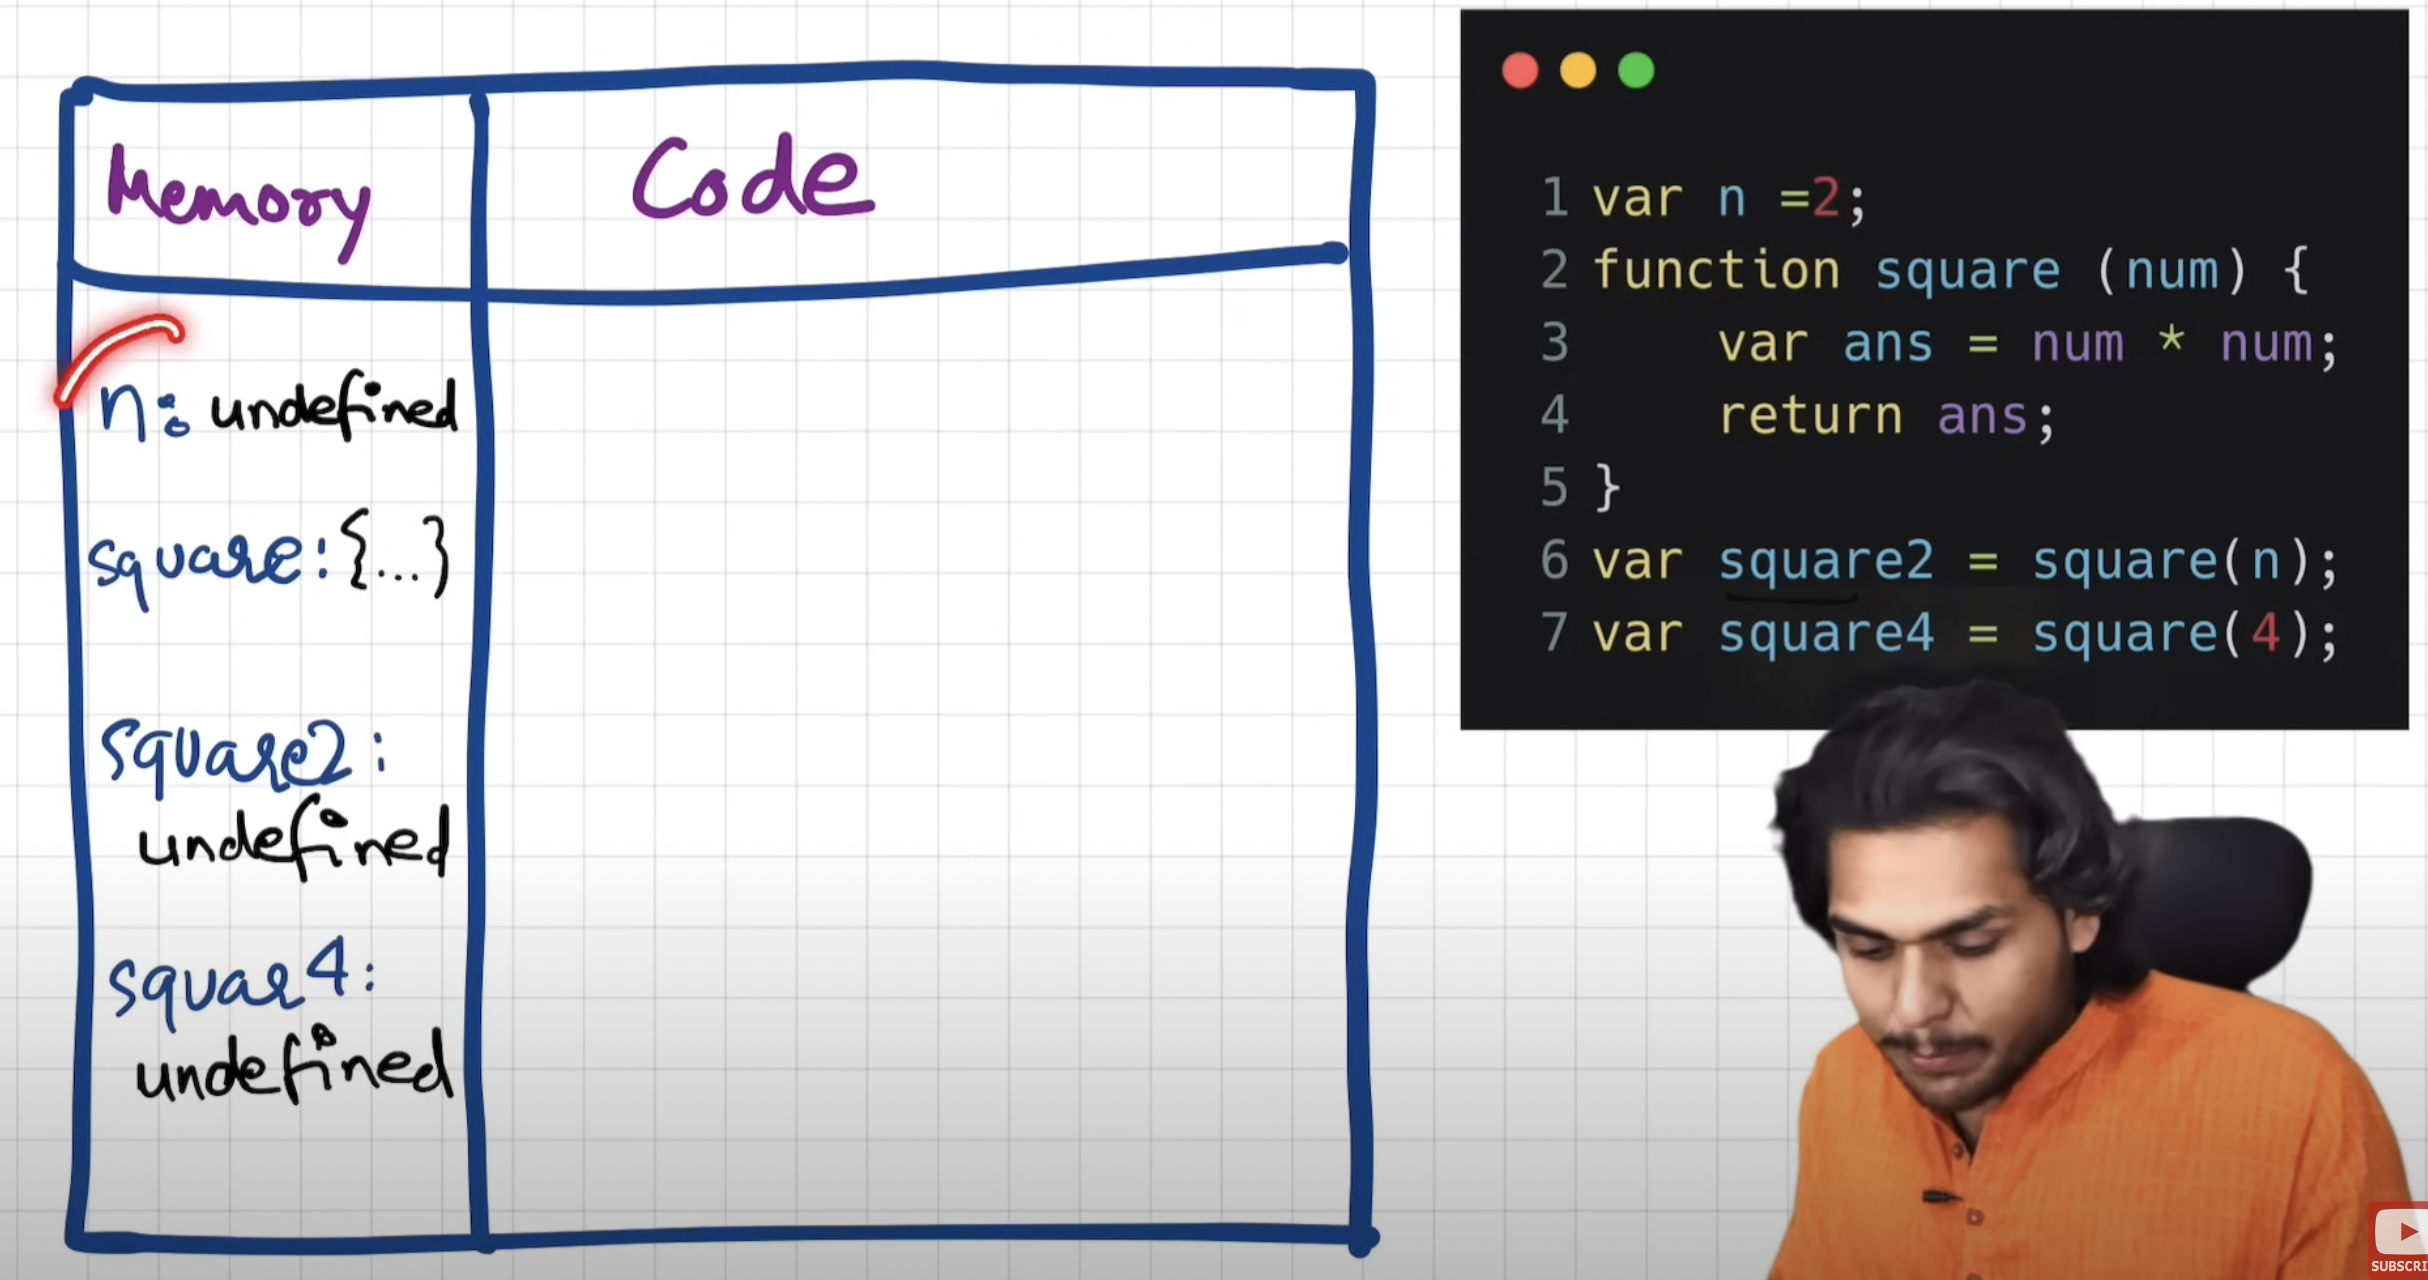 Memory
Code
n: undefined
square: {...}
square2:
undefined
squar4:
undefined
1 var n =2;
2 function square (num) {
3 var ans = num * num;
4 return ans;
5 }
6 var square2 = square(n);
7 var square4 = square(4);
SUBSCRI